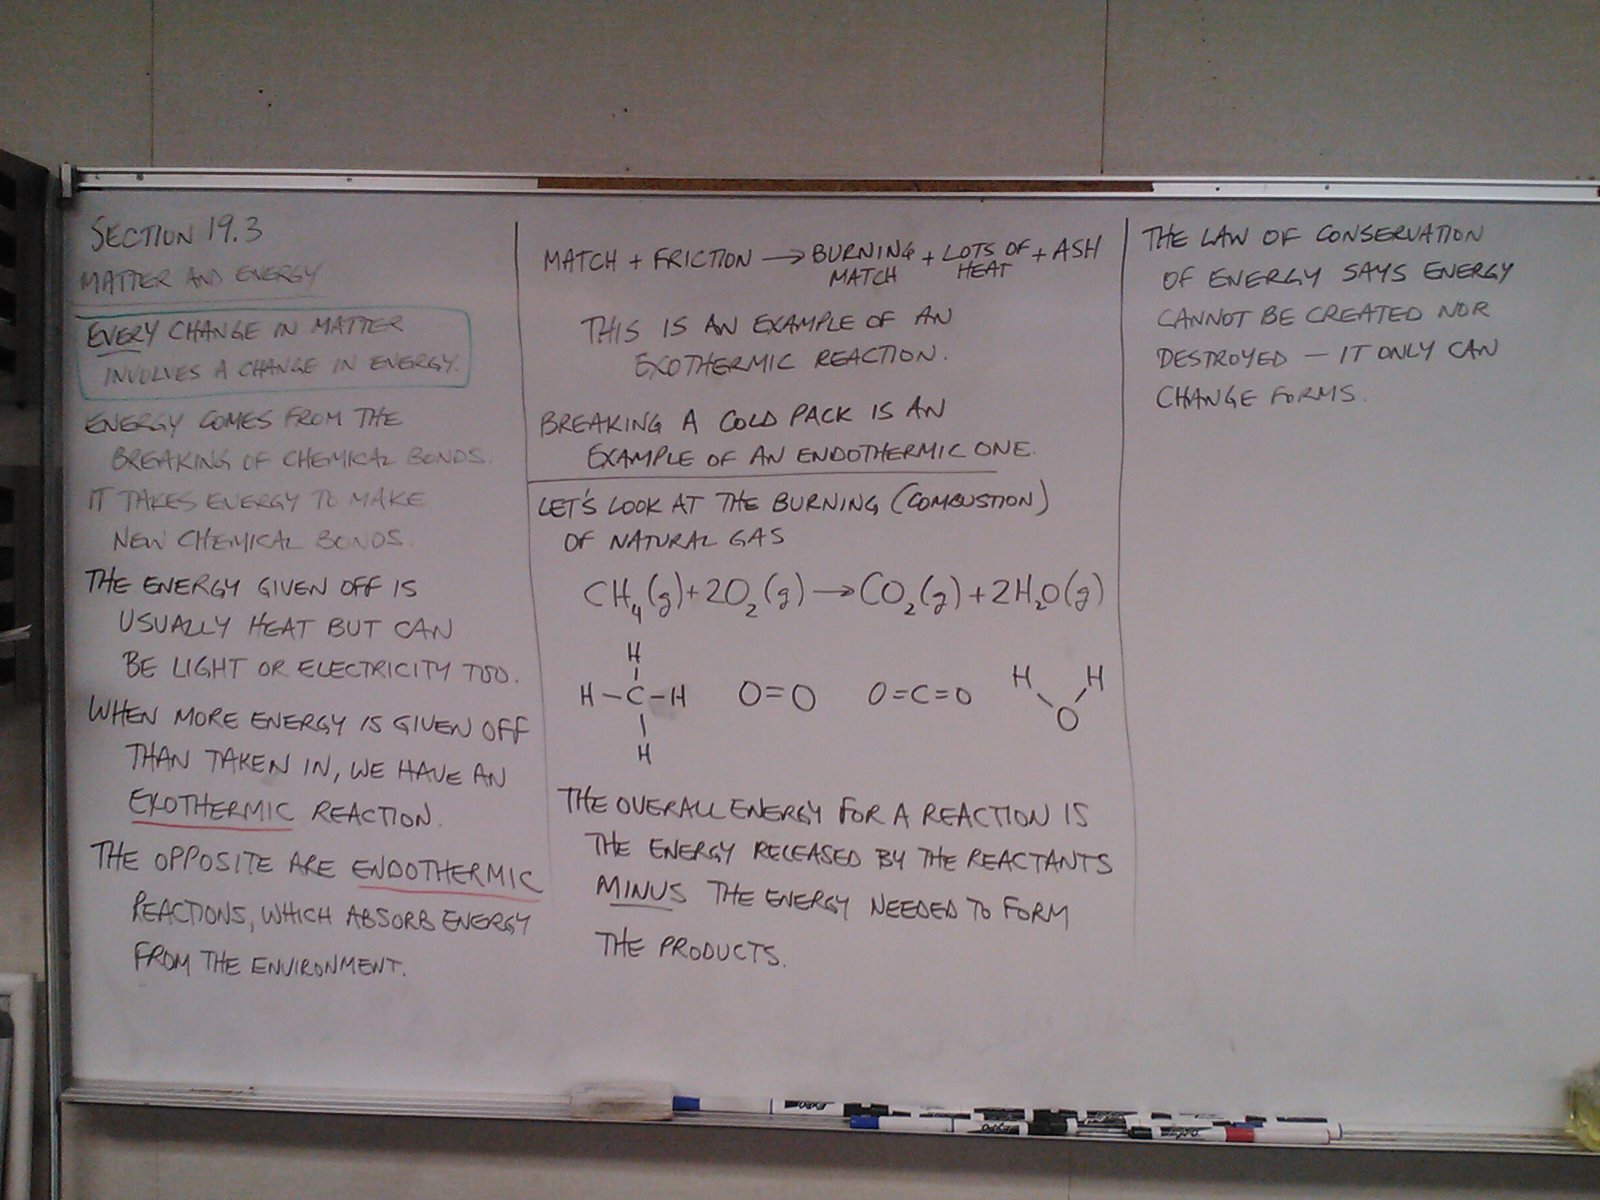 SECTION 19.3
MATTER AND ENERGY
EVERY CHANGE IN MATTER
INVOLVES A CHANGE IN ENERGY.
ENERGY COMES FROM THE
BREAKING OF CHEMICAL BONDS.
IT TAKES ENERGY TO MAKE
NEW CHEMICAL BONDS.
THE ENERGY GIVEN OFF IS
USUALLY HEAT BUT CAN
BE LIGHT OR ELECTRICITY TOO.
WHEN MORE ENERGY IS GIVEN OFF
THAN TAKEN IN, WE HAVE AN
EXOTHERMIC REACTION.
THE OPPOSITE ARE ENDOTHERMIC
REACTIONS, WHICH ABSORB ENERGY
FROM THE ENVIRONMENT.
MATCH + FRICTION → BURNING + LOTS OF + ASH
MATCH HEAT
THIS IS AN EXAMPLE OF AN
EXOTHERMIC REACTION.
BREAKING A COLD PACK IS AN
EXAMPLE OF AN ENDOTHERMIC ONE.
LET'S LOOK AT THE BURNING (COMBUSTION)
OF NATURAL GAS
CH₄(g) + 2O₂(g) → CO₂(g) + 2H₂O(g)
H
H–C–H O=O O=C=O H H
O
H
THE OVERALL ENERGY FOR A REACTION IS
THE ENERGY RELEASED BY THE REACTANTS
MINUS THE ENERGY NEEDED TO FORM
THE PRODUCTS.
THE LAW OF CONSERVATION
OF ENERGY SAYS ENERGY
CANNOT BE CREATED NOR
DESTROYED – IT ONLY CAN
CHANGE FORMS.